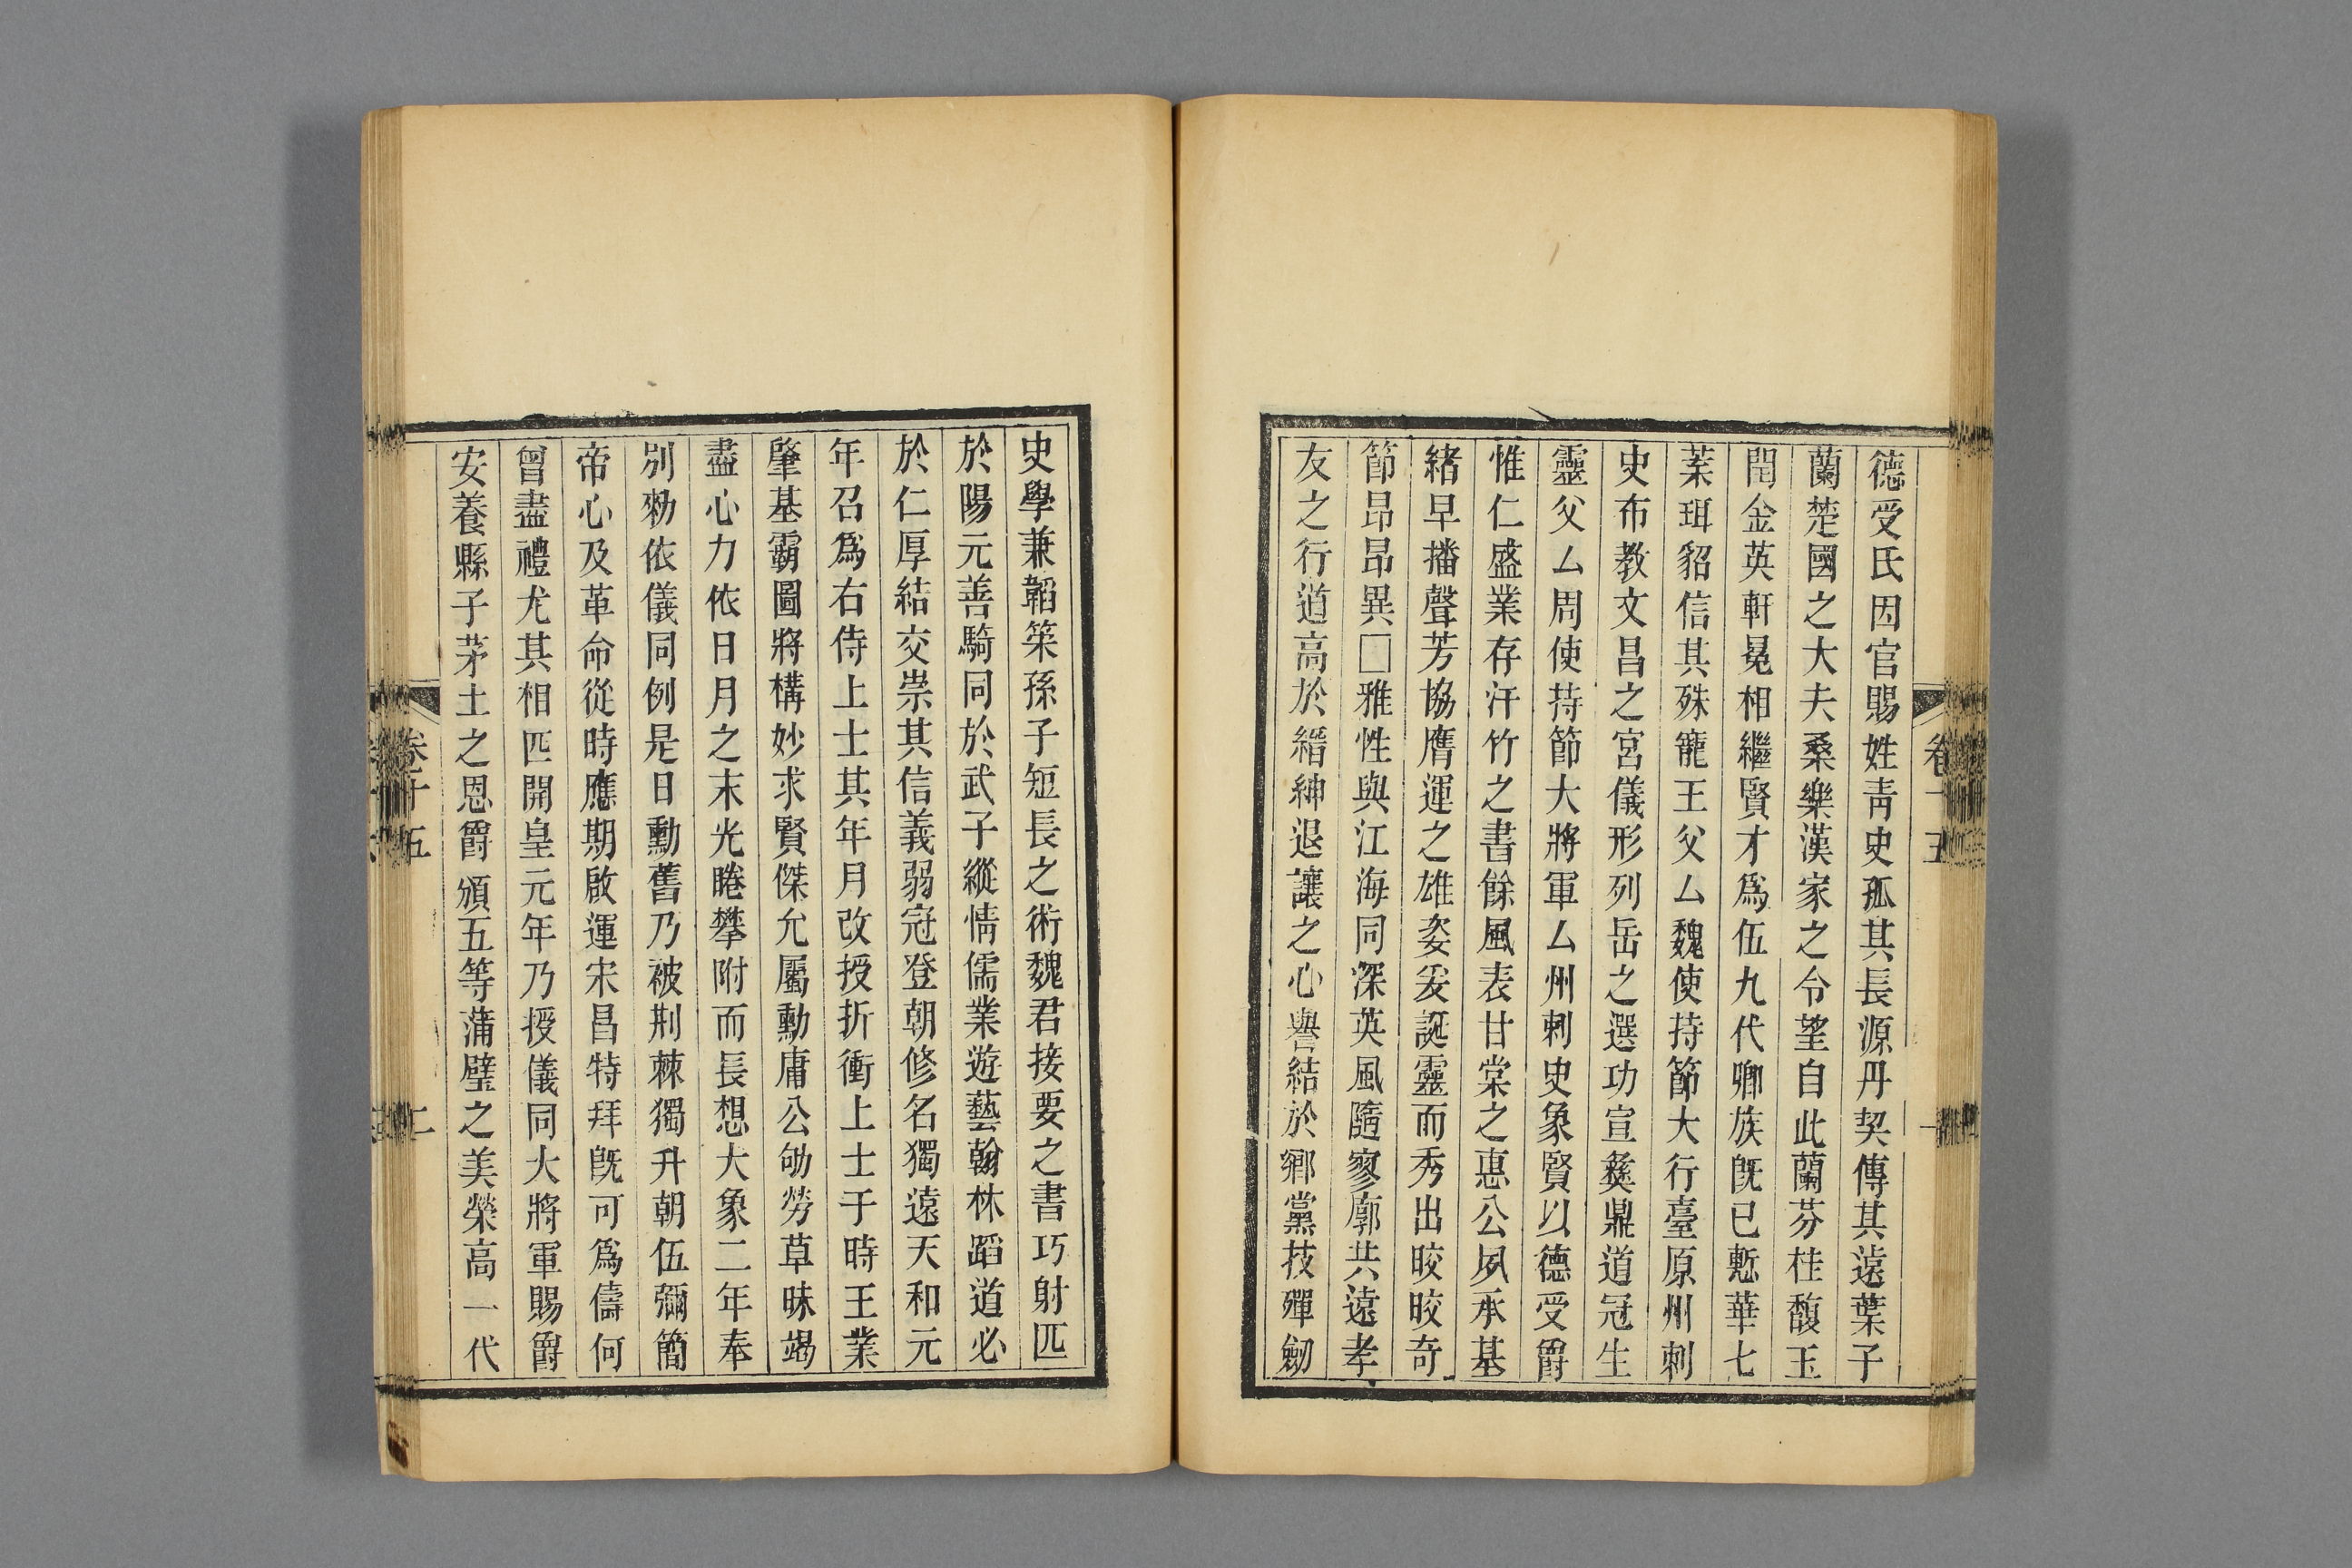 德受氏因官賜姓靑史孤其長源丹契傳其遠葉子
蘭楚國之大夫桑樂漢家之令望自此蘭芬桂馥玉
閏金英軒冕相繼賢才爲伍九代卿族旣已慙華七
葉珥貂信其殊寵王父厶魏使持節大行臺原州刺
史布教文昌之宮儀形列岳之選功宣彝鼎道冠生
靈父厶周使持節大將軍厶州刺史象賢以德受爵
惟仁盛業存汗竹之書餘風表甘棠之惠公夙承基
緒早播聲芳協膺運之雄姿爰誕靈而秀出晈晈奇
節昂昂異□雅性與江海同深英風隨寥廓共遠孝
友之行道高於縉紳退讓之心譽結於鄉黨技殫劒
史學兼韜筞孫子短長之術魏君接要之書巧射匹
於陽元善騎同於武子縱情儒業遊藝翰林蹈道必
於仁厚結交崇其信義弱冠登朝修名獨遠天和元
年召爲右侍上士其年月改授折衝上士于時王業
肇基霸圖將構妙求賢傑允屬勳庸公劬勞草昧竭
盡心力依日月之末光睠攀附而長想大象二年奉
別勑依儀同例是日勳舊乃被荆棘獨升朝伍彌簡
帝心及革命從時應期啟運宋昌特拜旣可爲儔何
曾盡禮尤其相匹開皇元年乃授儀同大將軍賜爵
安養縣子茅土之恩爵頒五等蒲璧之美榮高一代
卷十五
二